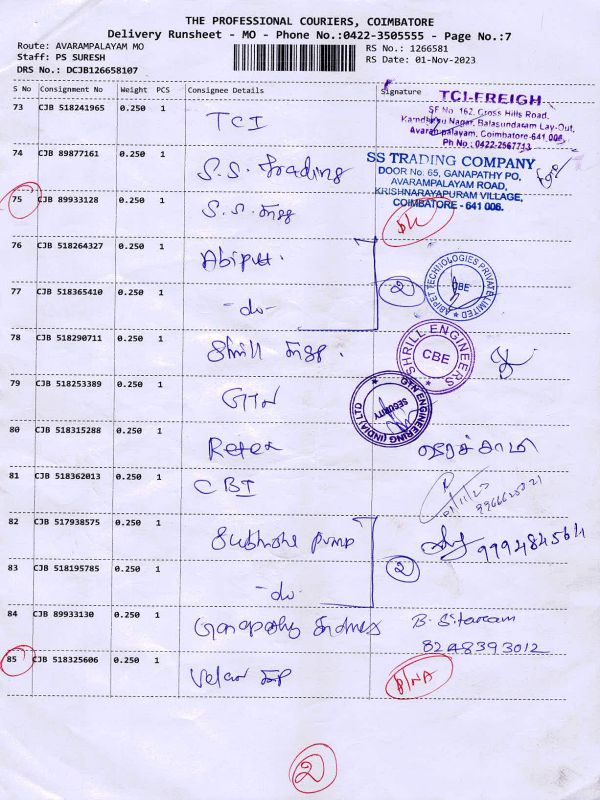 THE PROFESSIONAL COURIERS, COIMBATORE
Delivery Runsheet - MO - Phone No.:0422-3505555 - Page No.:7
Route: AVARAMPALAYAM MO
RS No.: 1266581
Staff: PS SURESH
RS Date: 01-Nov-2023
DRS No.: DCJB126658107
S No Consignment No Weight PCS Consignee Details Signature
73 CJB 518241965 0.250 1 TCI
TCI-FREIGH
SF No. 162, Cross Hills Road,
Nagar, Balasundaram Lay-Out,
Avaram palayam, Coimbatore-641 006.
Ph No.: 0422-2567713
74 CJB 89877161 0.250 1 S.S. Trading
SS TRADING COMPANY
DOOR No. 65, GANAPATHY PO,
AVARAMPALAYAM ROAD,
KRISHNARAYAPURAM VILLAGE,
COIMBATORE - 641 006.
75 CJB 89933128 0.250 1 S.S.
76 CJB 518264327 0.250 1 Abipet.
2
ABIPET TECHNOLOGIES PRIVATE LIMITED
CBE
77 CJB 518365410 0.250 1 -do-
78 CJB 518290711 0.250 1 Shrill
SHRILL ENGINEERS
CBE
79 CJB 518253389 0.250 1 GTN
GTN ENGINEERING (INDIA) LTD
SECURITY
80 CJB 518315288 0.250 1
81 CJB 518362013 0.250 1 CBI
01/11/23
82 CJB 517938575 0.250 1 pump
9994845564
2
83 CJB 518195785 0.250 1 -do-
84 CJB 89933130 0.250 1 Ganapathy
B. Sitaram
8248393012
85 CJB 518325606 0.250 1 Velan
P/NA
2